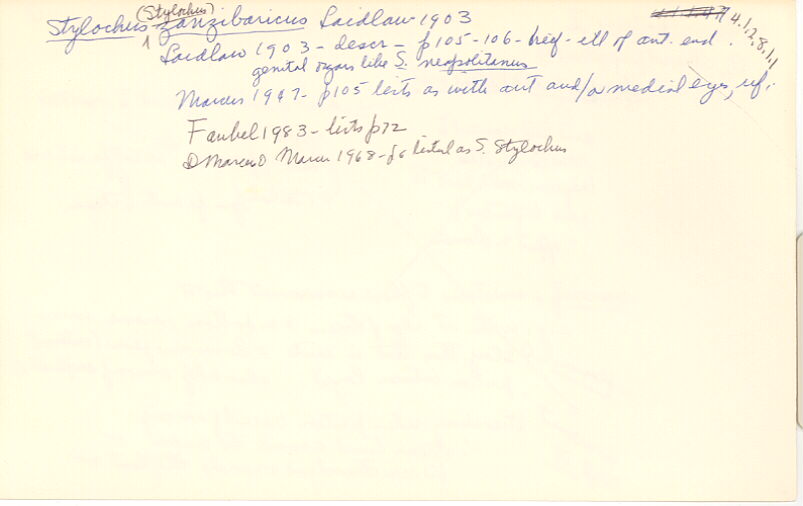 Stylochus (Stylochus) zanzibaricus Laidlaw 1903
4.1.2.8.1.1
Laidlaw 1903 - descr - p105-106 - brief - ill of ant. end.
genital organs like S. neapolitanus
Marcus 1947 - p105 lists as with ant and/a medial eyes,
Faubel 1983 - lists p72
D Marcus 1968 - p6 listed as S. Stylochus